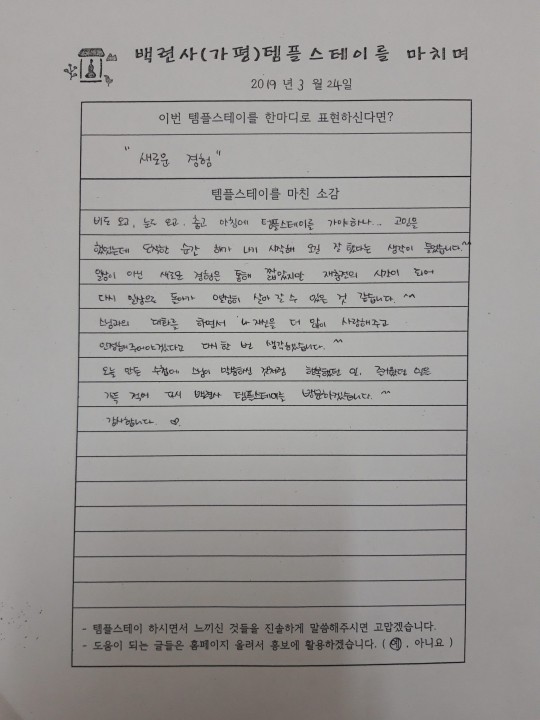 백련사(가평)템플스테이를 마치며
2019 년 3 월 24일
이번 템플스테이를 한마디로 표현하신다면?
" 새로운 경험 "
템플스테이를 마친 소감
비도 오고, 눈도 오고, 춥고 아침에 템플스테이를 가야하나... 고민을
했었는데 도착한 순간 해가 나기 시작해 오길 잘 했다는 생각이 들었습니다.^^
일상이 아닌 새로운 경험을 통해 짧았지만 재충전의 시간이 되어
다시 일상으로 돌아가 열심히 살아갈 수 있을 것 같습니다. ^^
스님과의 대화를 하면서 나 자신을 더 많이 사랑해주고
인정해주어야겠다고 다시 한 번 생각했습니다. ^^
오늘 만든 수첩에 스님이 말씀하신 것처럼 행복했던 일, 즐거웠던 일을
가득 적어 다시 백련사 템플스테이를 방문하겠습니다. ^^
감사합니다. ♡
- 템플스테이 하시면서 느끼신 것들을 진솔하게 말씀해주시면 고맙겠습니다.
- 도움이 되는 글들은 홈페이지 올려서 홍보에 활용하겠습니다. ( 예 , 아니요 )